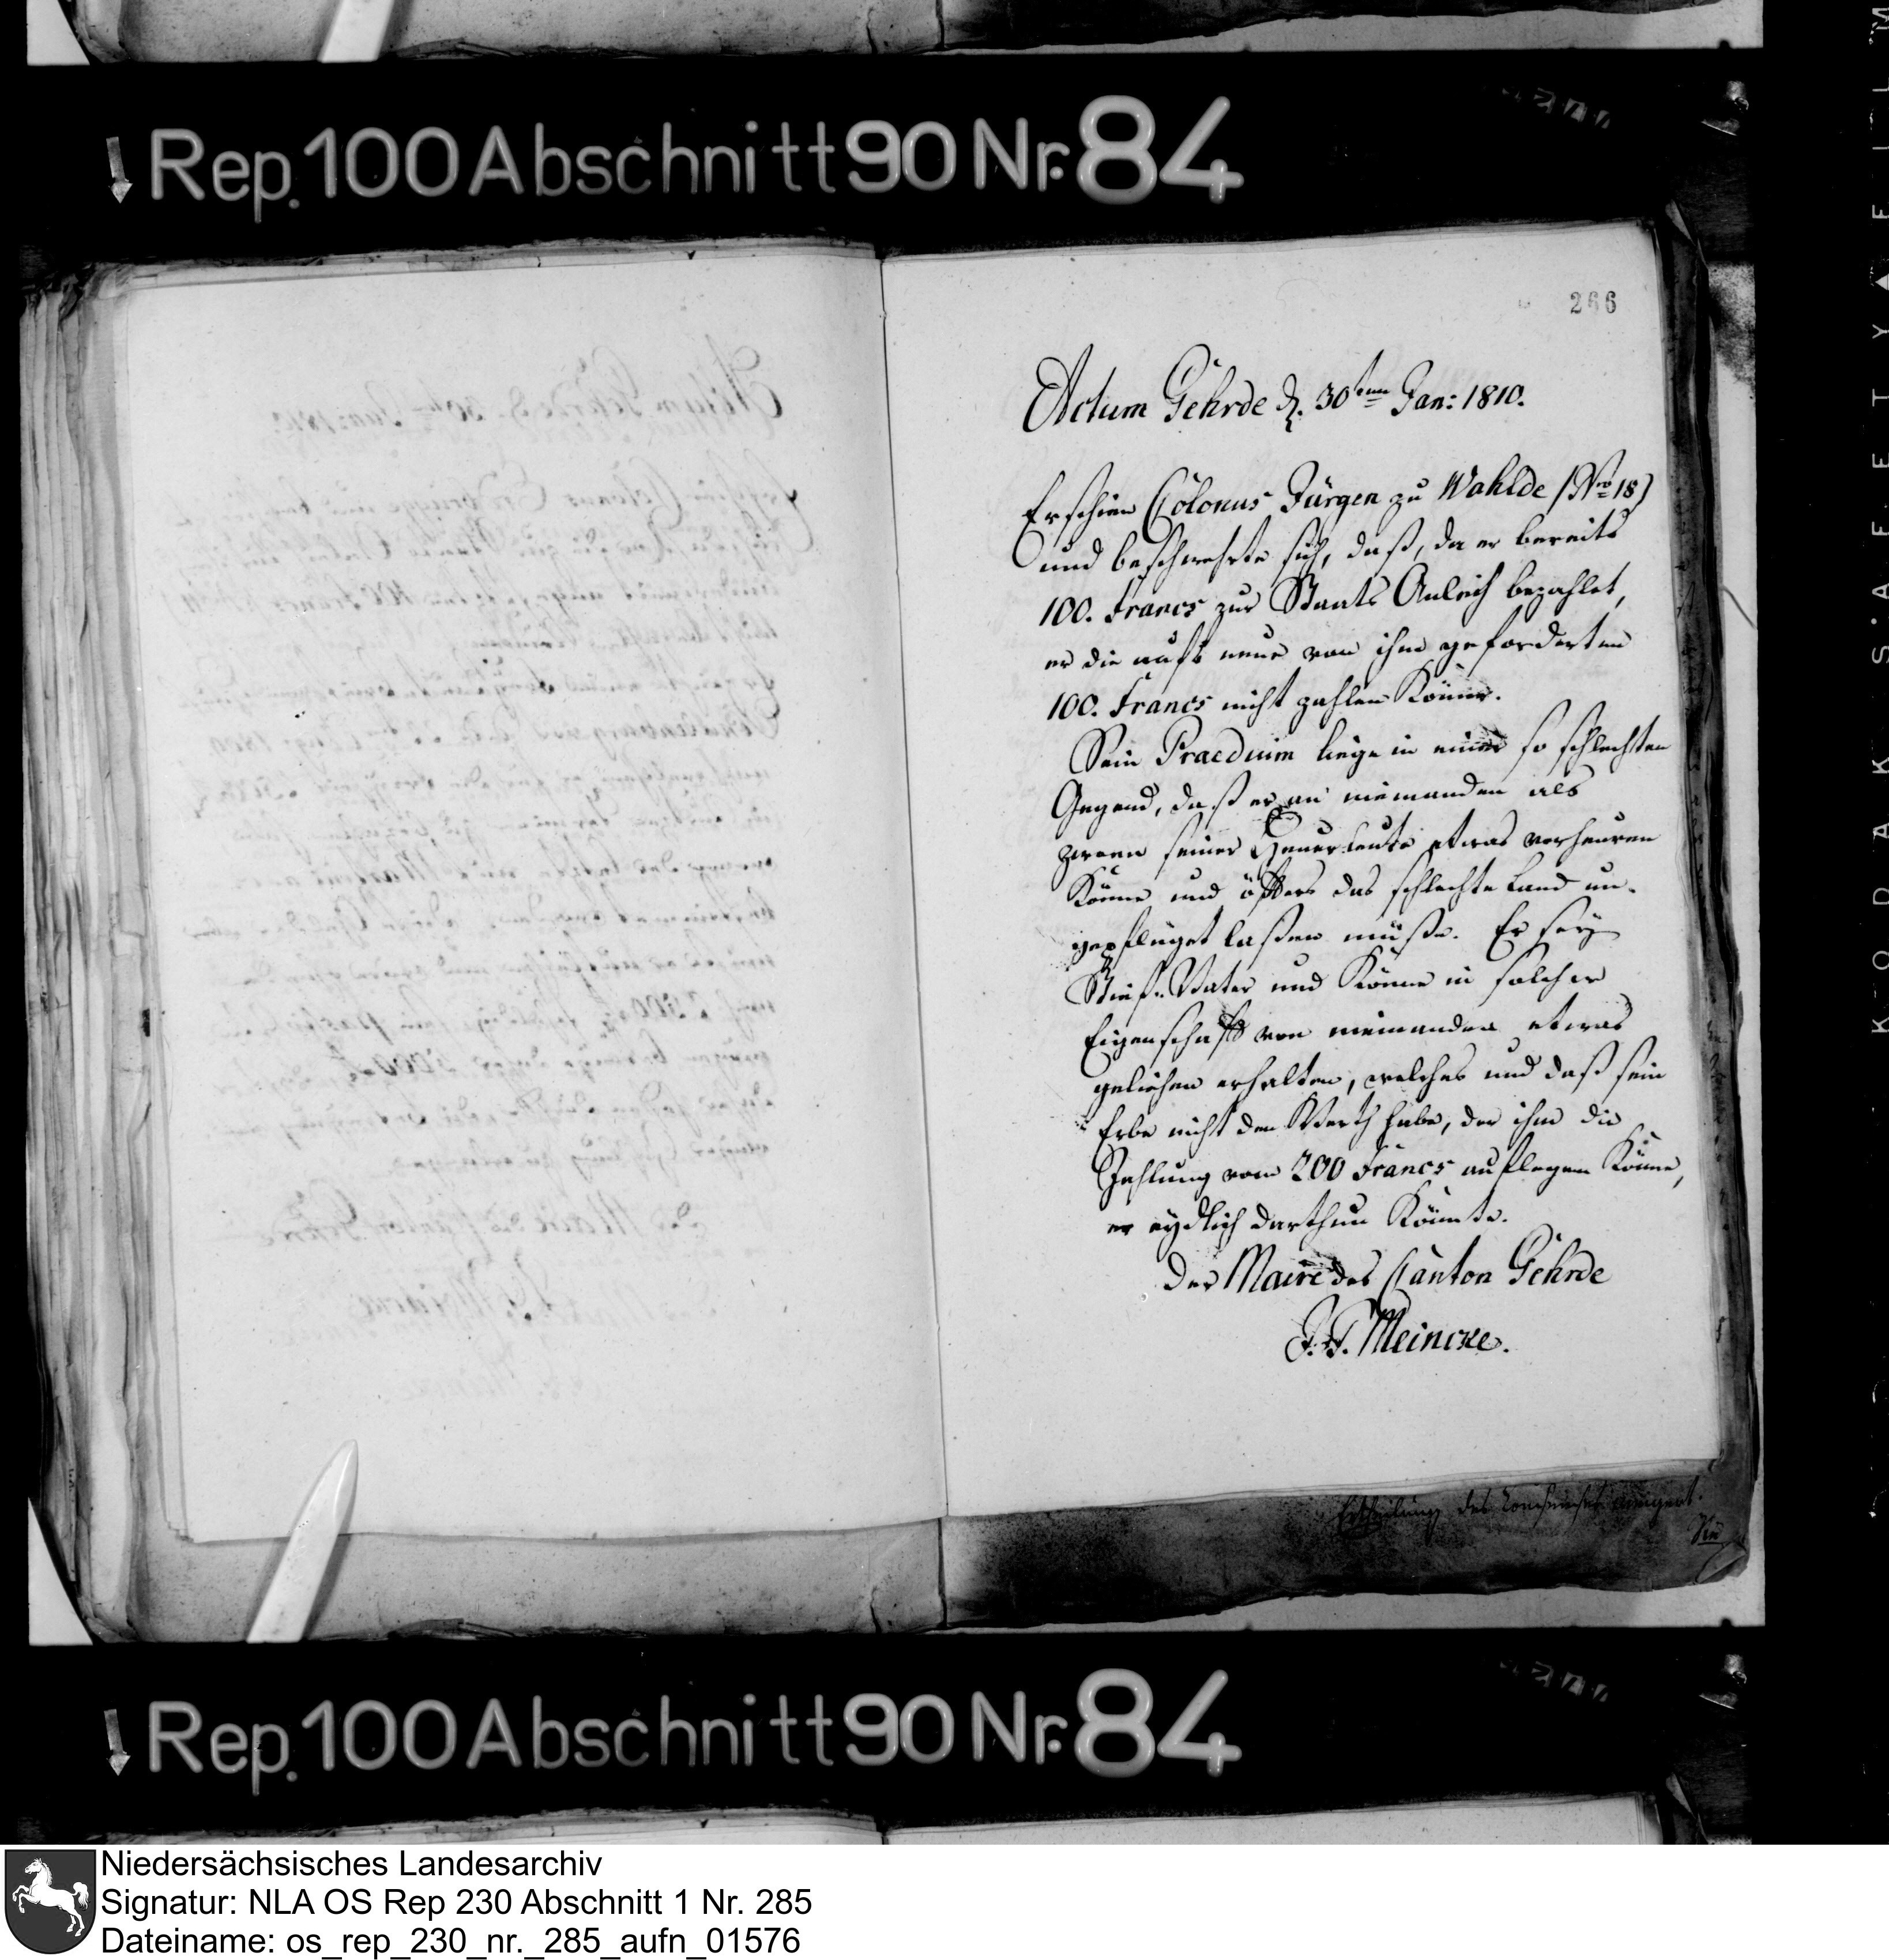 Rep. 100 Abschnitt 90 Nr. 84
266
Actum Gehrde d. 30ten Jan: 1810.
Erschien Colonus Jürgen zu Wahlde (Nro 18)
und beschwehrte sich, daß, da er bereits
100. Francs zur Staats Anleih bezahlet,
er die aufs neue von ihm geforderten
100. Francs nicht zahlen könne.
Sein Praedium liege in einer so schlechten
Gegend, daß er an niemanden als
zween seiner Heuerleute etwas verheuren
könne und öffters das schlechte Land un-
gepflüget laßen müße. Er sey
Stief-Vater und könne in solcher
Eigenschafft von niemanden etwas
geliehen erhalten, welches und daß sein
Erbe nicht den Werth habe, der ihm die
Zahlung von 200 Francs auflegen könne,
er eydlich darthun könnte.
Der Maire des Canton Gehrde
J. F. Meincke.
des
Rep. 100 Abschnitt 90 Nr. 84
KODAK S.A.F.E.T.Y ▲ FILM
Niedersächsisches Landesarchiv
Signatur: NLA OS Rep 230 Abschnitt 1 Nr. 285
Dateiname: os_rep_230_nr._285_aufn_01576